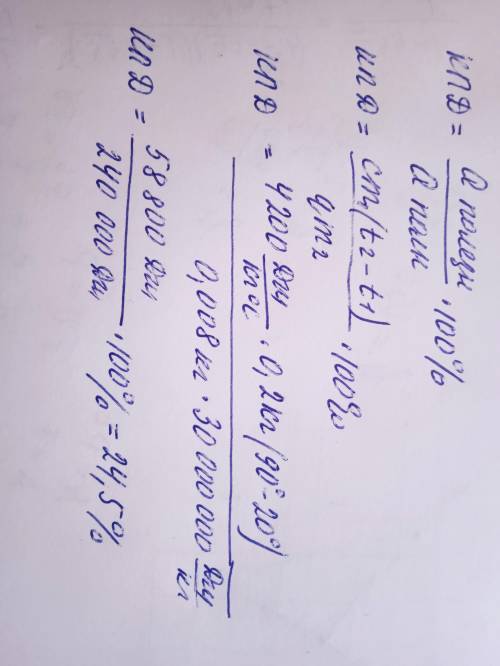 КПД = Q полезн / Q полн · 100%
КПД = cm₁(t₂ - t₁) / qm₂ · 100%
КПД = 4200 Дж/кг°C · 0,2кг (90° - 20°) / 0,008 кг · 30 000 000 Дж/кг
КПД = 58 800 Дж / 240 000 Дж · 100% = 24,5%